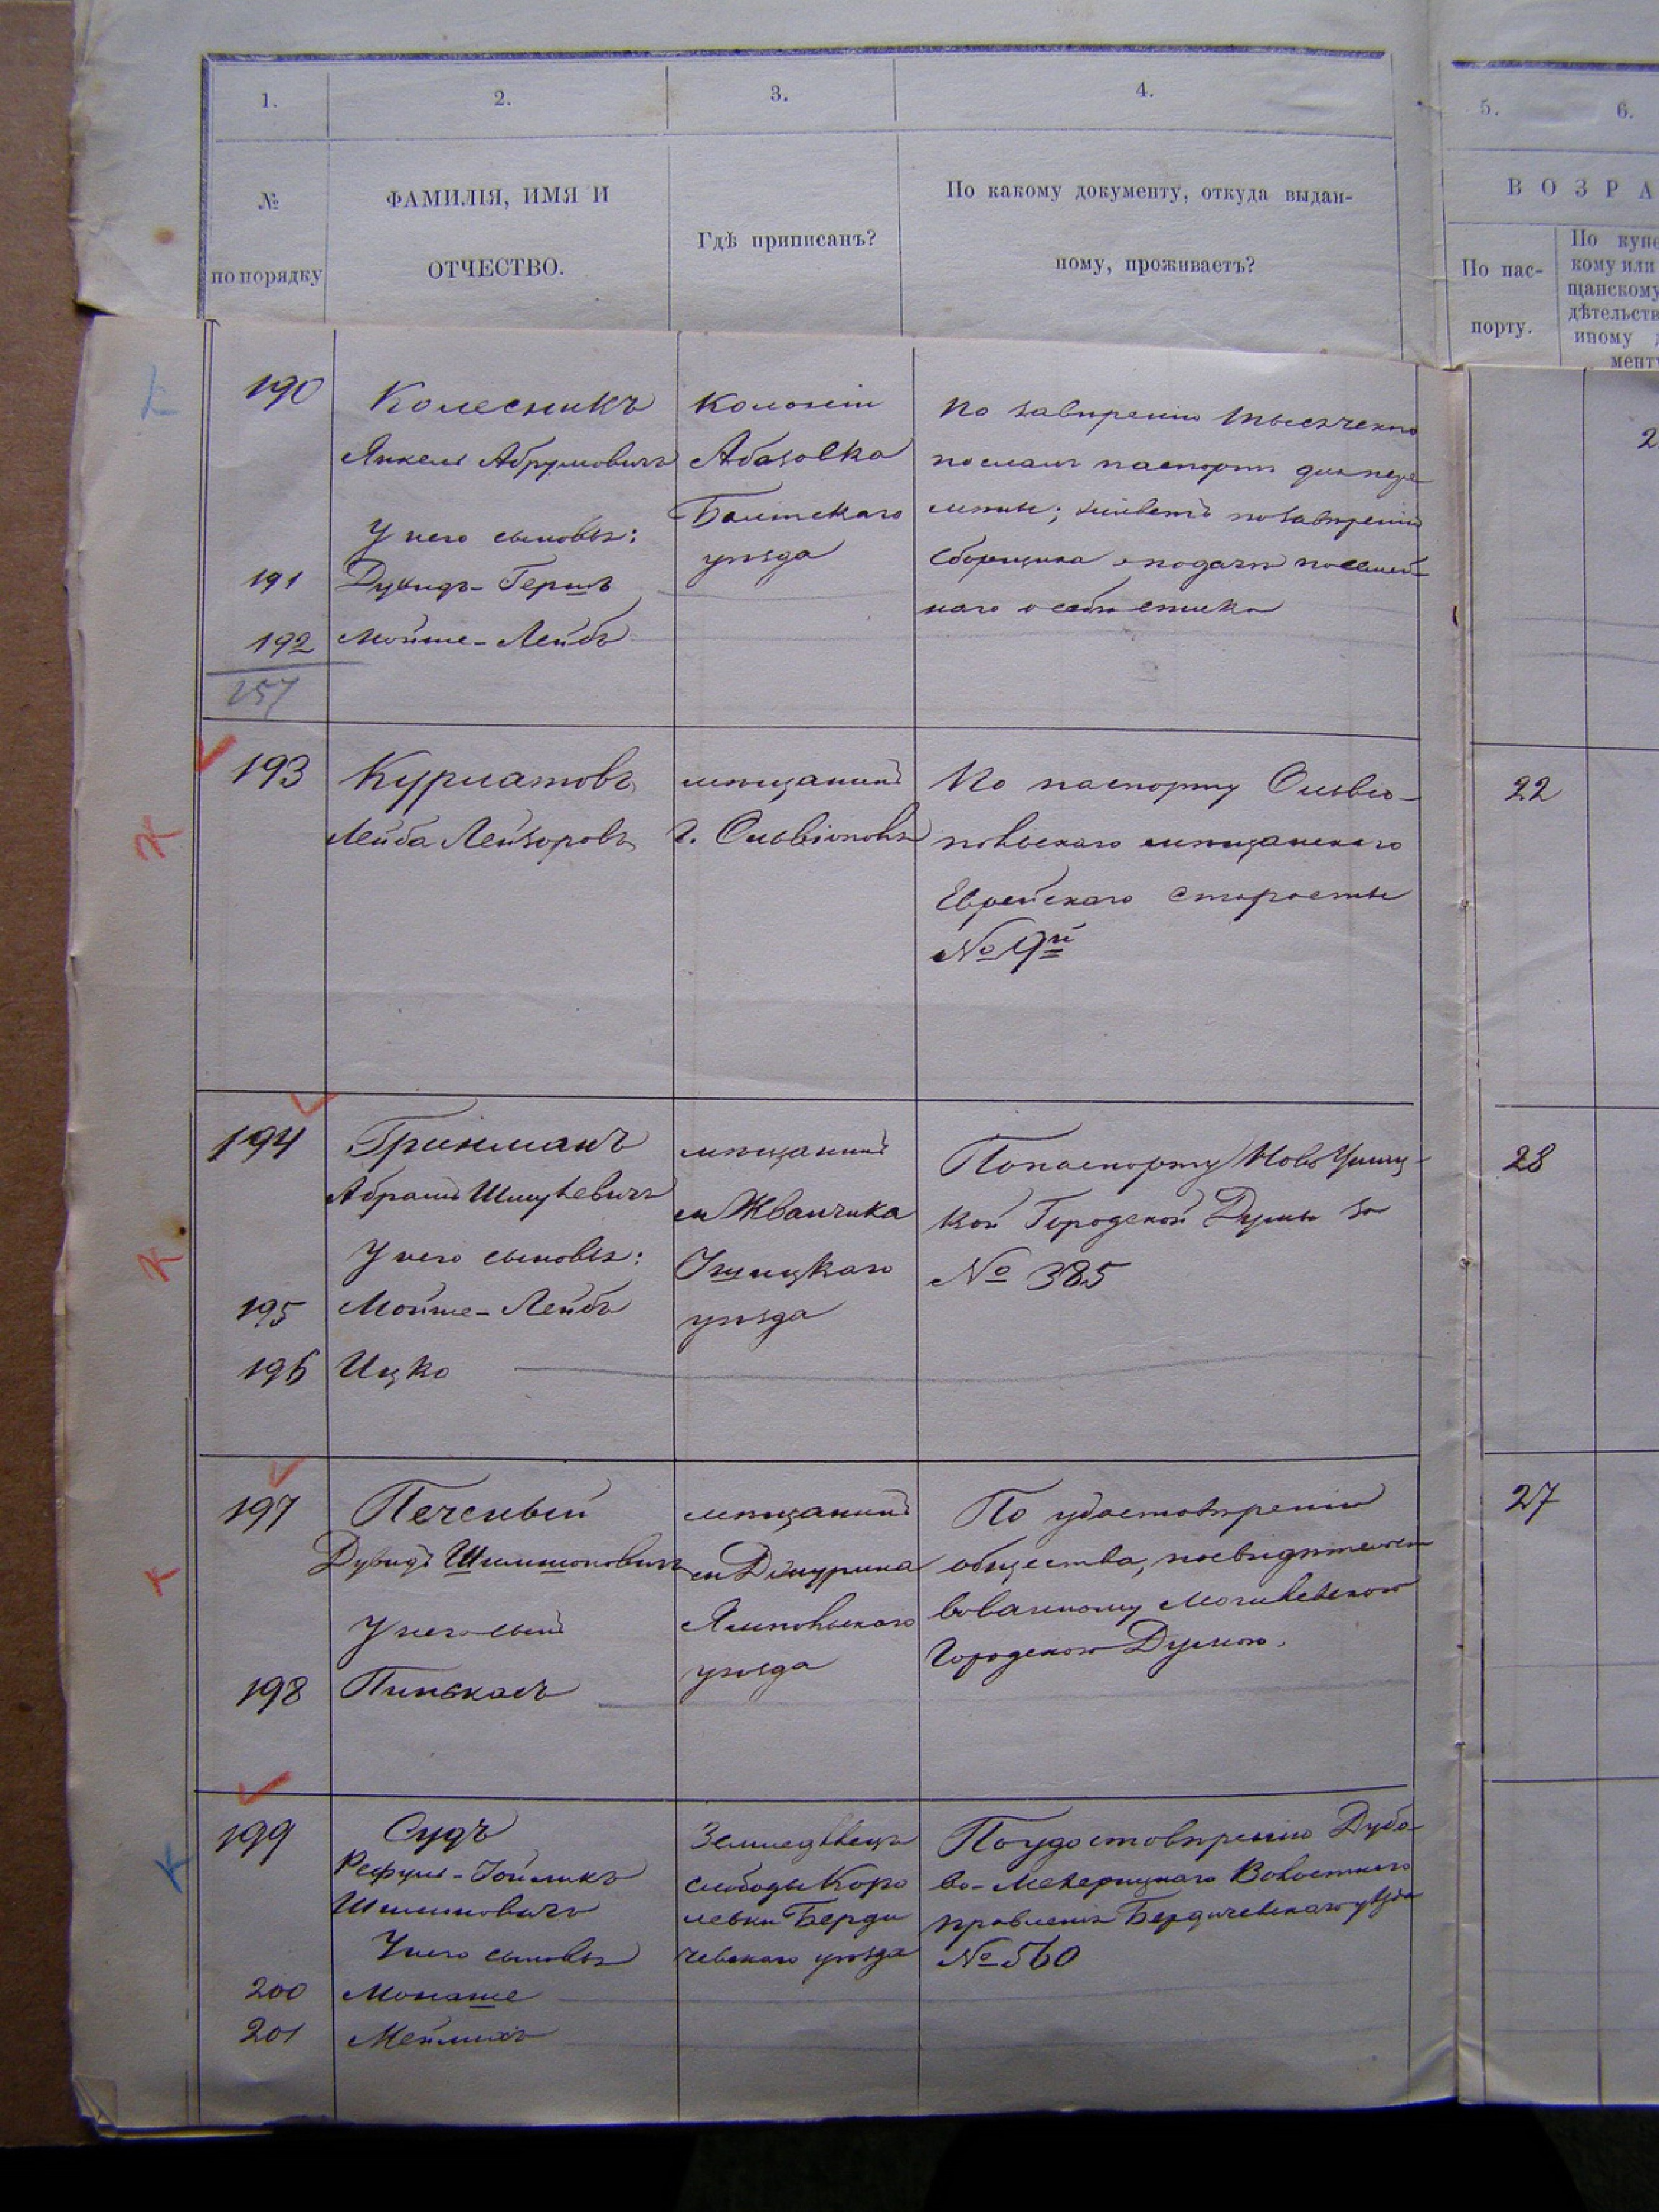 1.
2.
3.
4.
5.
6.
№
по порядку
ФАМИЛІЯ, ИМЯ И
ОТЧЕСТВО.
Гдѣ приписанъ?
По какому документу, откуда выдан-
ному, проживаетъ?
ВОЗРА
По пас-
порту.
По купе
кому или
щанскому
дѣтельств
иному д
менту
190
Колесникъ
Янкель Абрумовичъ
У него сыновья:
191
Дувидъ-Гершъ
192
Мойше-Лейбъ
257
Колоніи
Абазовка
Балтскаго
уѣзда
по завѣренію
посланъ паспортъ для пере
мѣны; живетъ по завѣренію
сборщика о подачѣ посемей-
наго о себѣ списка
2
193
Курлатовъ
Лейба Лейзоровъ
мѣщанинъ
г. Ольвіополь
По паспорту Ольвіо-
польскаго мѣщанскаго
Еврейскаго старосты
№ 19й
22
194
Гринманъ
Абрамъ Шмулевичъ
У него сыновья:
195
Мойше-Лейбъ
196
Ицко
мѣщанинъ
м Жванчика
Ушицкаго
уѣзда
По паспорту Ново Ушиц-
кой Городской Думы за
№ 385
28
197
Печеный
Дувидъ Шимшоновичъ
У него сынъ
198
Пинькасъ
мѣщанинъ
м Джурина
Ямпольскаго
уѣзда
По удостовѣренію
общества, посвидѣтельст
вованному Могилевскою
Городскою Думою.
27
199
Судъ
Рефуль-Іойликъ
Шлимовичъ
У него сыновья
200
Монаше
201
Мейлихъ
Земледѣлецъ
слободы Коро
левки Берди
чевскаго уѣзда
По удостовѣренію Дуба-
во-Мехерицкаго Волостнаго
правленія Бердичевскаго уѣзда
№ 560